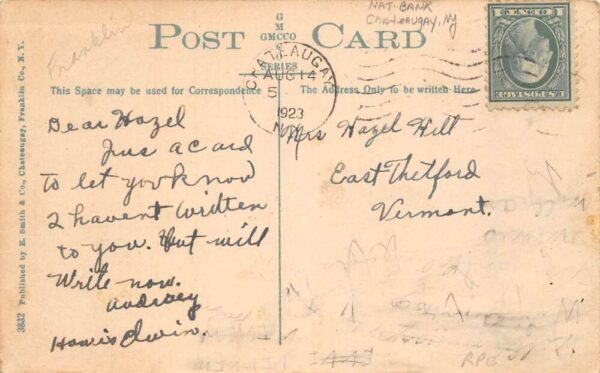 Franklin
NAT. BANK
Chateaugay, NY
POST CARD
G
M
GMCCO
C
SERIES
CHATEAUGAY
AUG 14
5
1923
N.Y.
1 CENT 1
U.S. POSTAGE
This Space may be used for Correspondence
The Address Only to be written Here
Dear Hazel
Just a card
to let you know
I havent written
to you. But will
Write now.
Audrey
Howis Elwin.
Mrs Hazel Hilt
East Thetford
Vermont.
3832 Published by E. Smith & Co., Chateaugay, Franklin Co., N. Y.
RPE